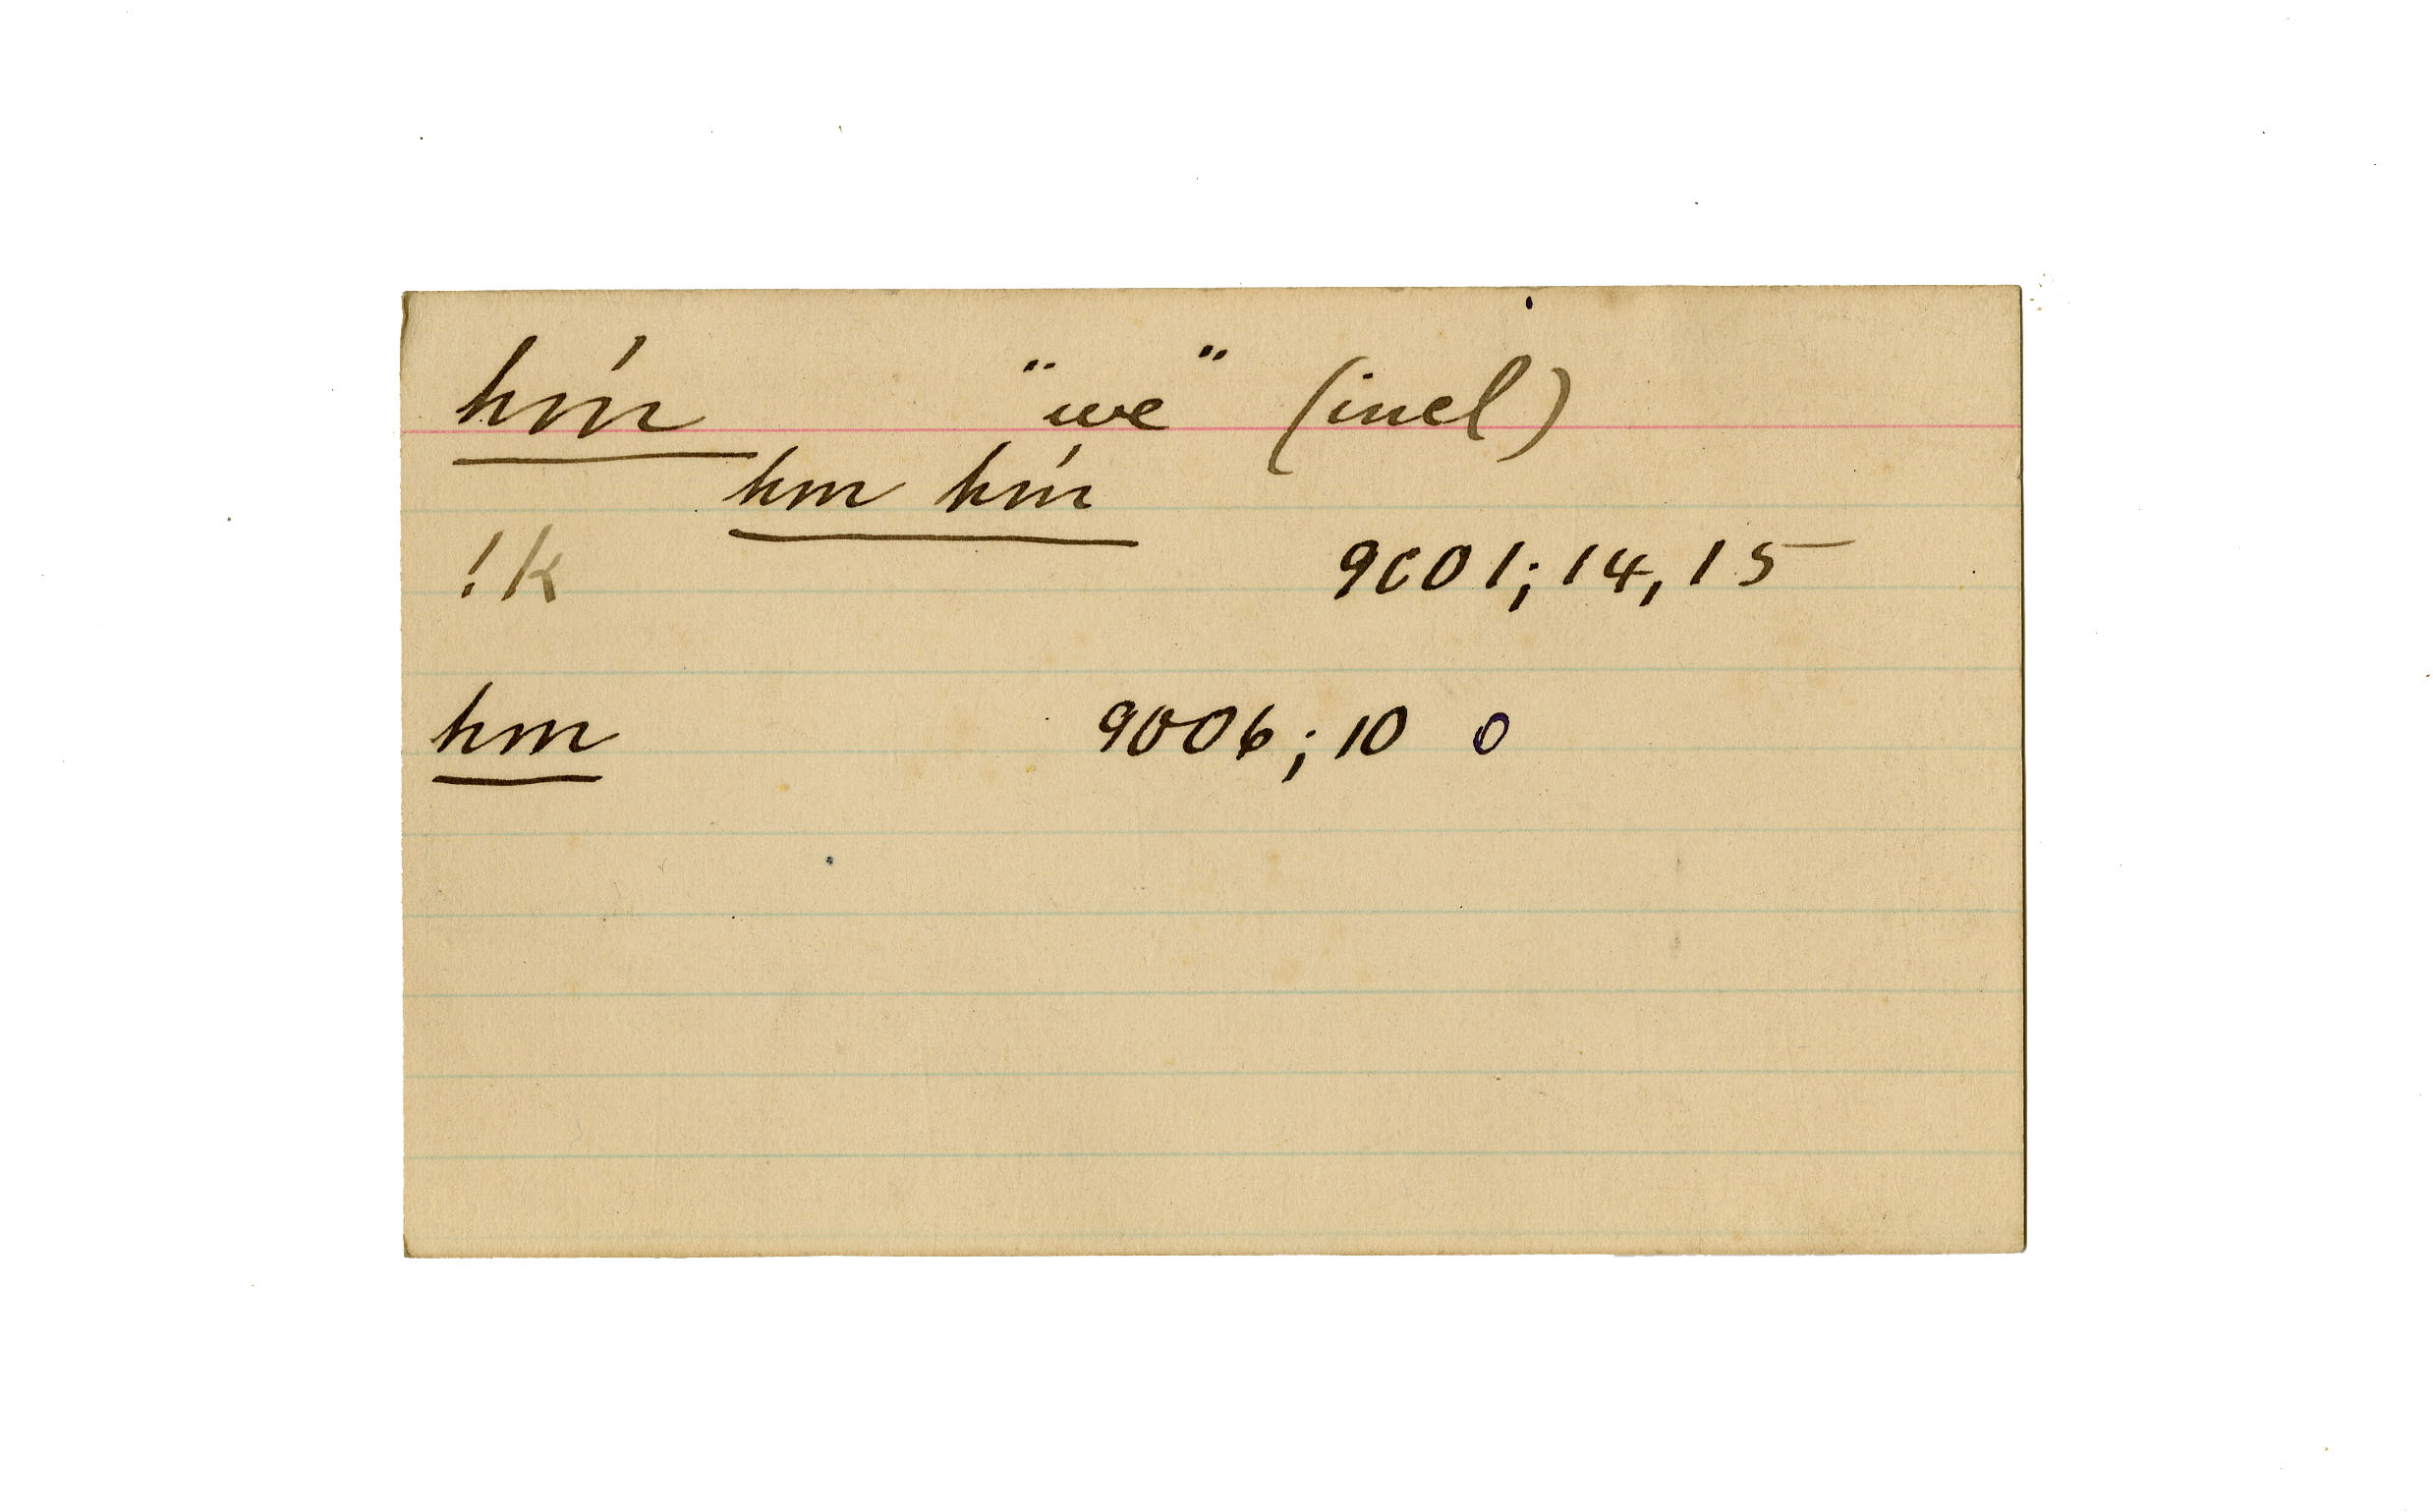 hḿ "we" (incl)
hm hḿ
!k 9001; 14, 15
hm 9006; 10 0